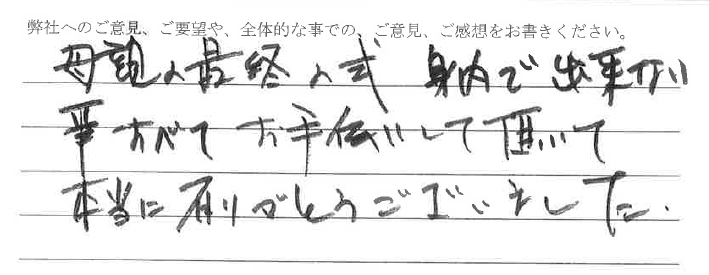 弊社へのご意見、ご要望や、全体的な事での、ご意見、ご感想をお書きください。
母親の最終の式 身内で出来ない
事すべてお手伝いして頂いて
本当に有りがとうございました.